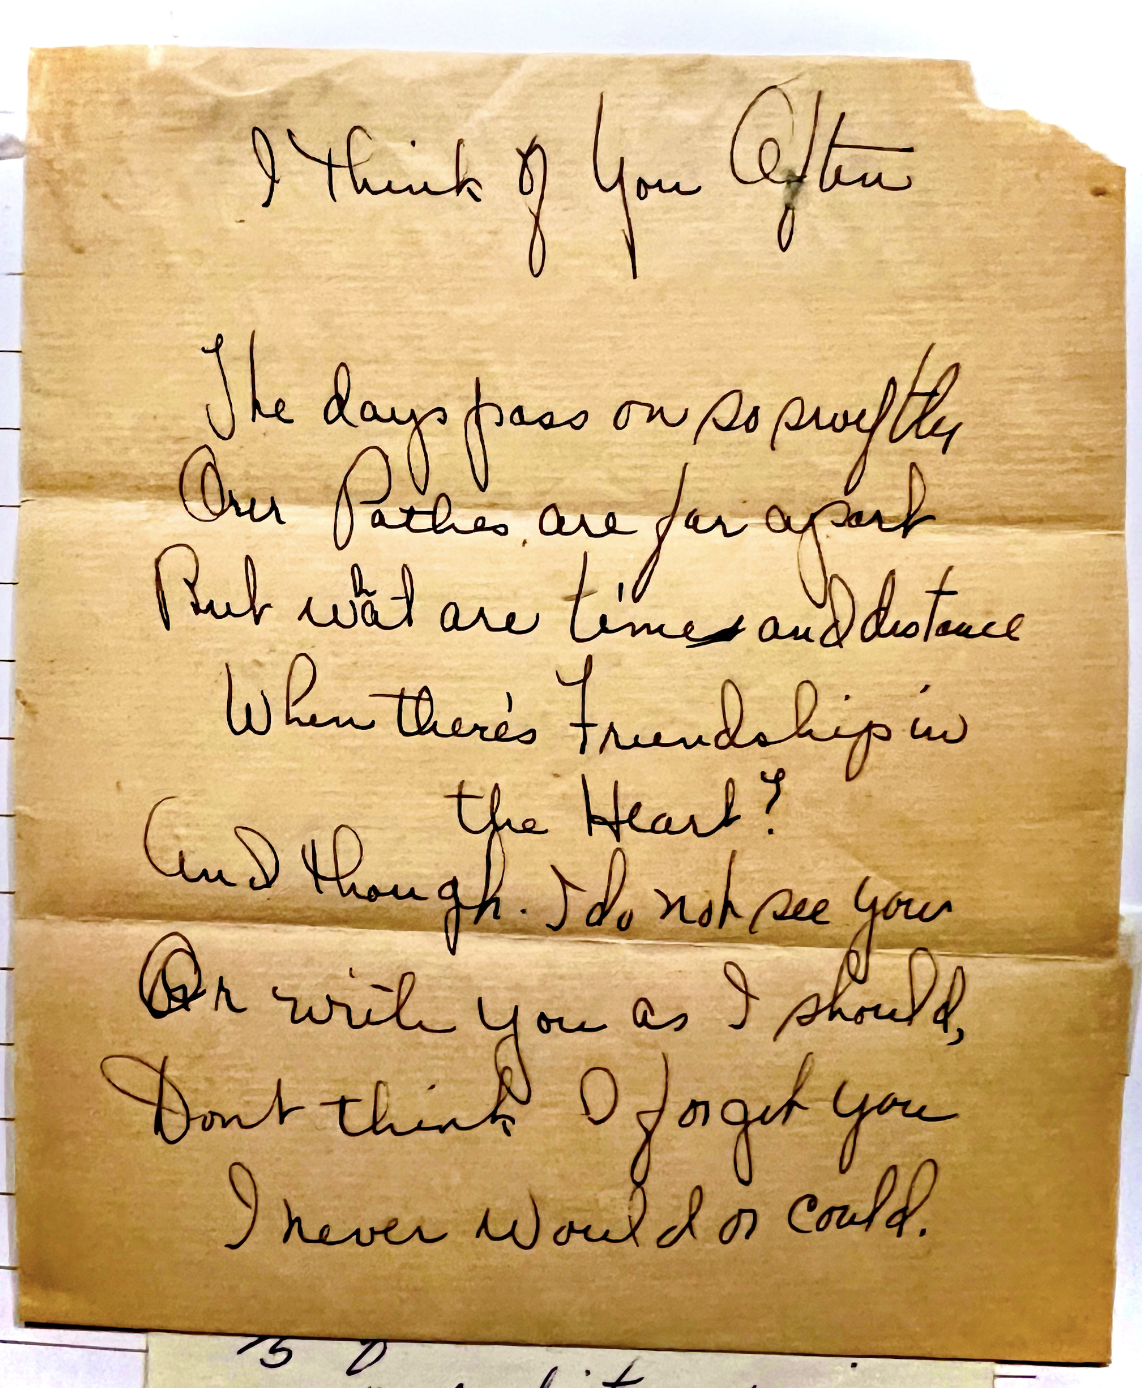 I Think of You Often
The days pass on so swiftly
Our Pathes are far apart
But what are time and distance
When there's Friendship in
the Heart?
And though I do not see you
Or write you as I should,
Dont think I forget you
I never would or could.